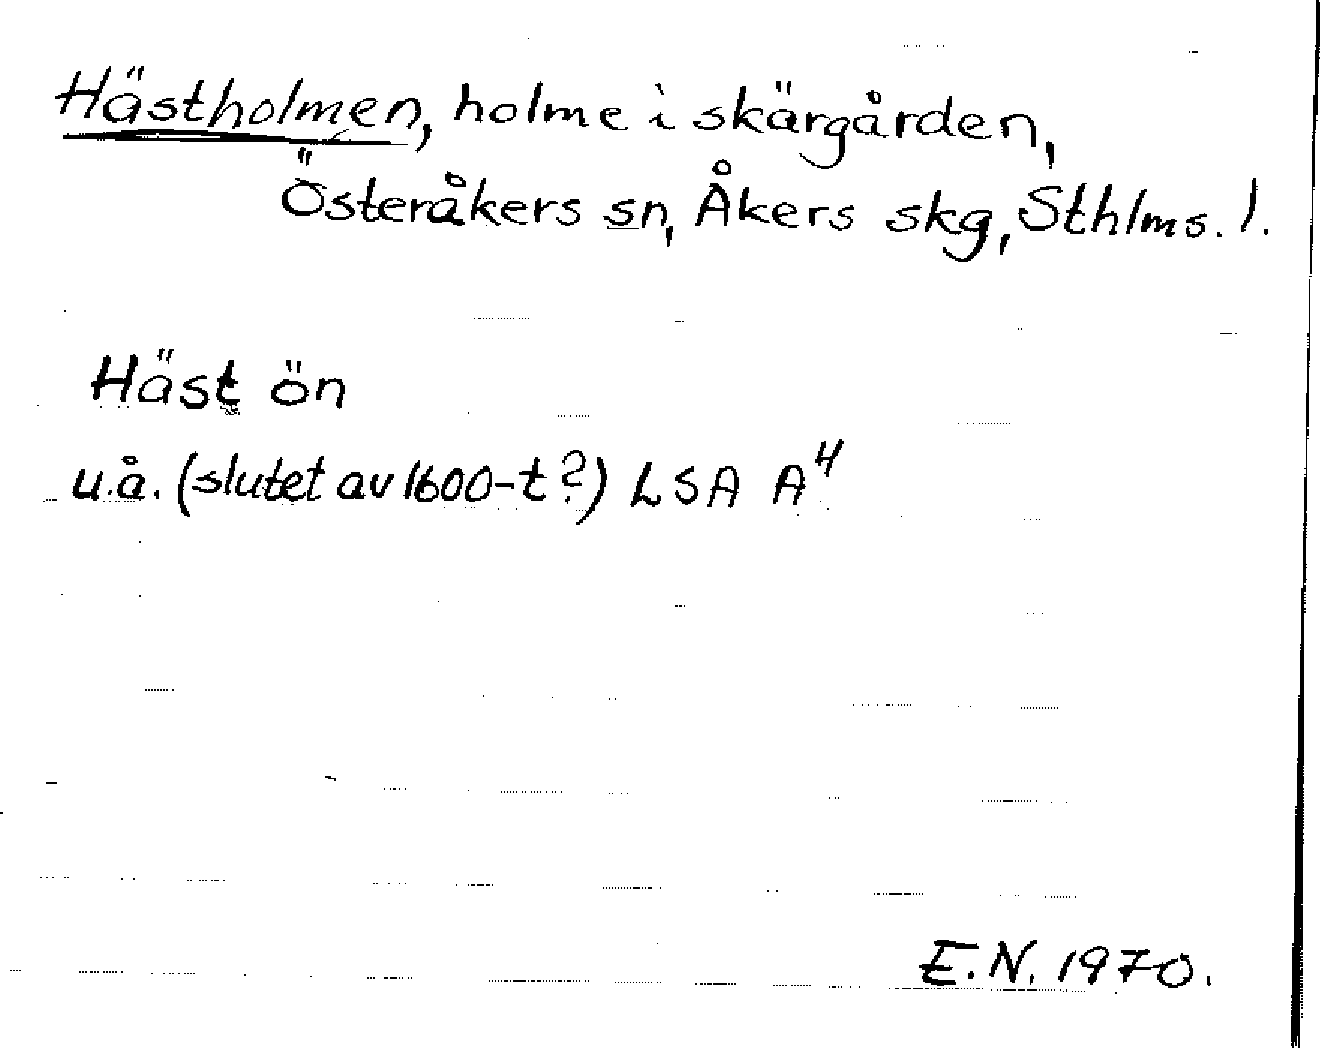 Hästholmen, holme i skärgården,
Österåkers sn, Åkers skg, Sthlms. l.
Häst ön
u.å. (slutet av 1600-t?) LSA A⁴
E.N. 1970.